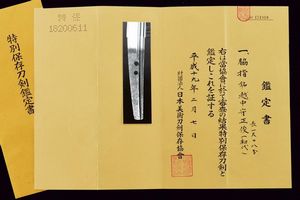 特別保存刀剣鑑定書
特保
鑑定書
一、脇指 銘 越中守正俊(初代)
長一尺一寸八分
右は當協會に於て審査の結果特別保存刀剣と
鑑定しこれを証する
平成十九年二月七日
財団法人 日本美術刀剣保存協會